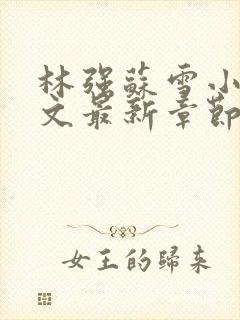 林强蘇雪小
文最新章節
女王的歸来